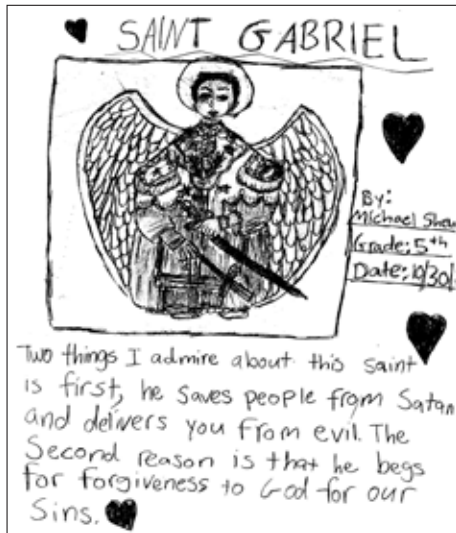 SAINT GABRIEL
By:
Michael
Grade: 5th
Date: 10/30/
Two things I admire about this saint
is first, he saves people from Satan
and delivers you from evil. The
Second reason is that he begs
for forgiveness to God for our
Sins.